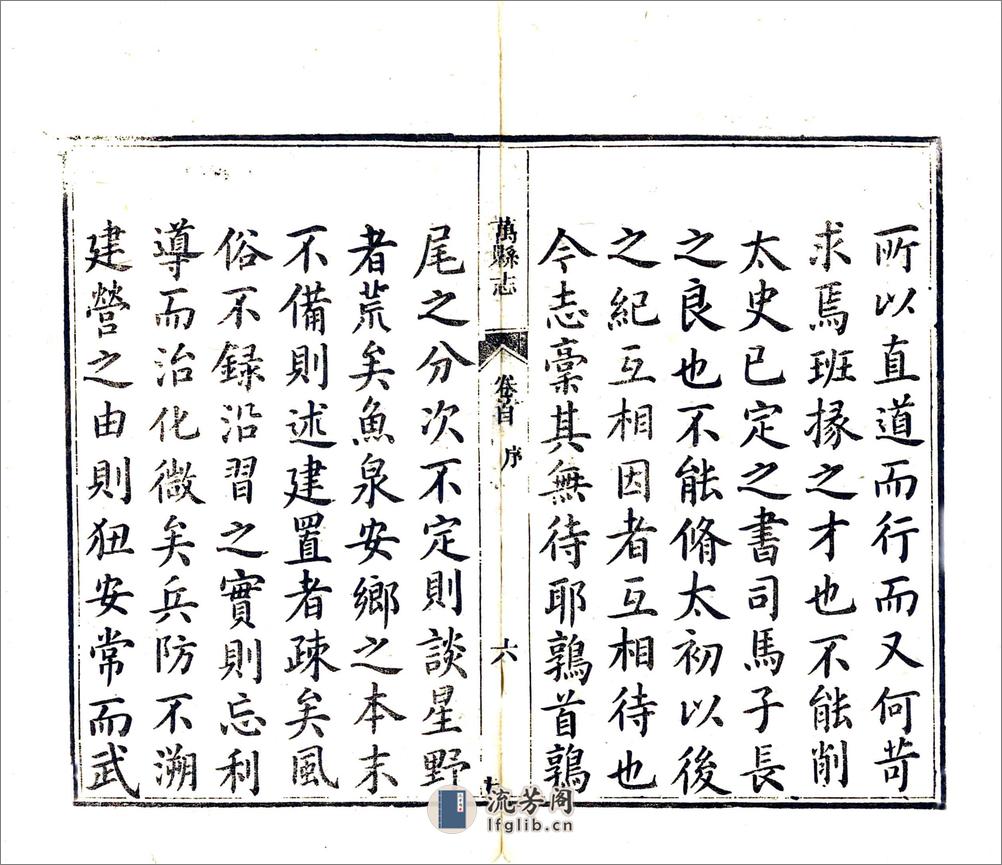 所以直道而行而又何苛
求焉班掾之才也不能削
太史已定之書司馬子長
之良也不能脩太初以後
之紀互相因者互相待也
今志稾其無待耶鶉首鶉
萬縣志
卷首
序
六
尾之分次不定則談星野
者荒矣魚泉安鄉之本末
不備則述建置者疎矣風
俗不録沿習之實則忘利
導而治化微矣兵防不溯
建營之由則狃安常而武
流芳阁
lfglib.cn